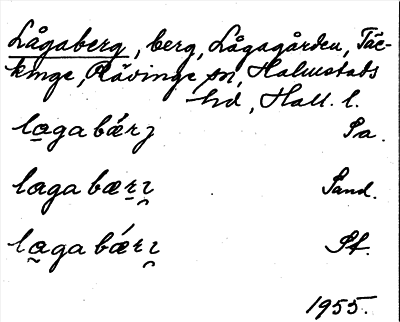 Lågaberg, berg, Lågagården, Täc-
kinge, Rävinge sn, Halmstads
hd, Hall. l.
lagabǽrȷ Sa.
lagabærı Sand.
lagabǽrı St.
1955.